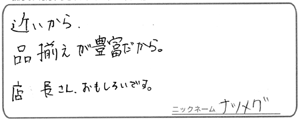 近いから.
品揃えが豊富だから。
店長さん、おもしろいです。
ニックネーム ナツメグ